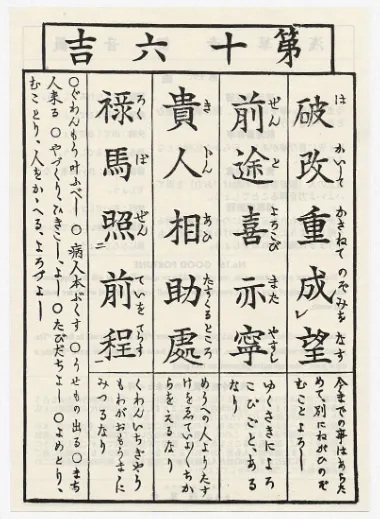 第十六吉
破改重成望
は かいして かさねて のぞみを なす
今までの事はあらた
めて別にねがひのぞ
むことよろし
前途喜亦寧
ぜん と よろこび また やすし
ゆくさきによろ
こびごと、ある
なり
貴人相助處
き じん あひ たすくるところ
めうへの人よりたす
けをゑていよ〱ちか
らをえるなり
禄馬照前程
ろく ば てらす ぜん ていを
くわんいちぎやう
もわがおもうまゝに
みつるなり
〇ぐわんもう叶ふべし 〇病人本ぷくす 〇うせもの出る 〇まち
人来る 〇やづくり、ひきこし、よし 〇たびだちよし 〇よめとり、
むことり、人をかゝへる、よろづよし